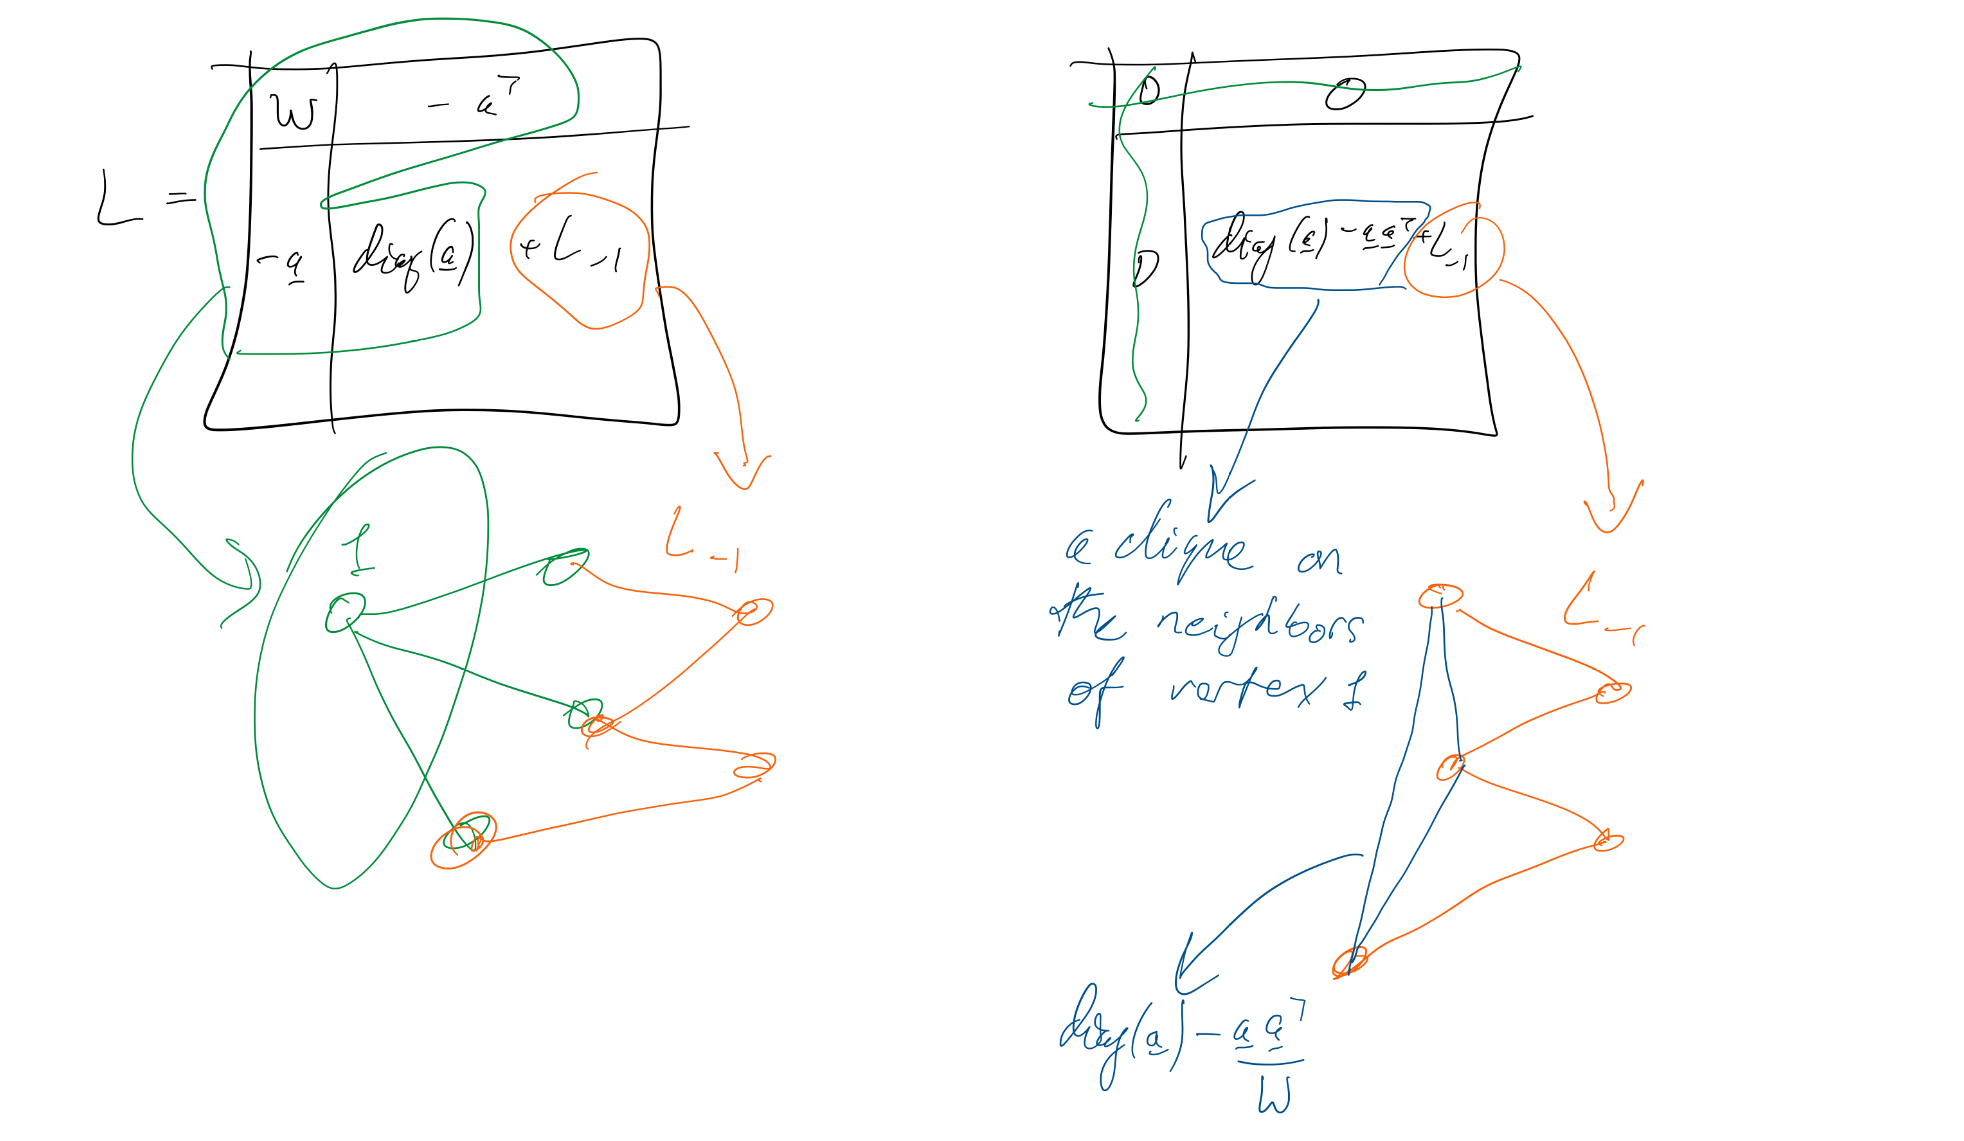 L =
W
- a^T
- a
diag(a)
+ L_{-1}
1
L_{-1}
0
0
0
diag(a) - a a^T
+ L_{-1}
a clique on
the neighbors
of vertex 1
L_{-1}
diag(a) - a a^T
W